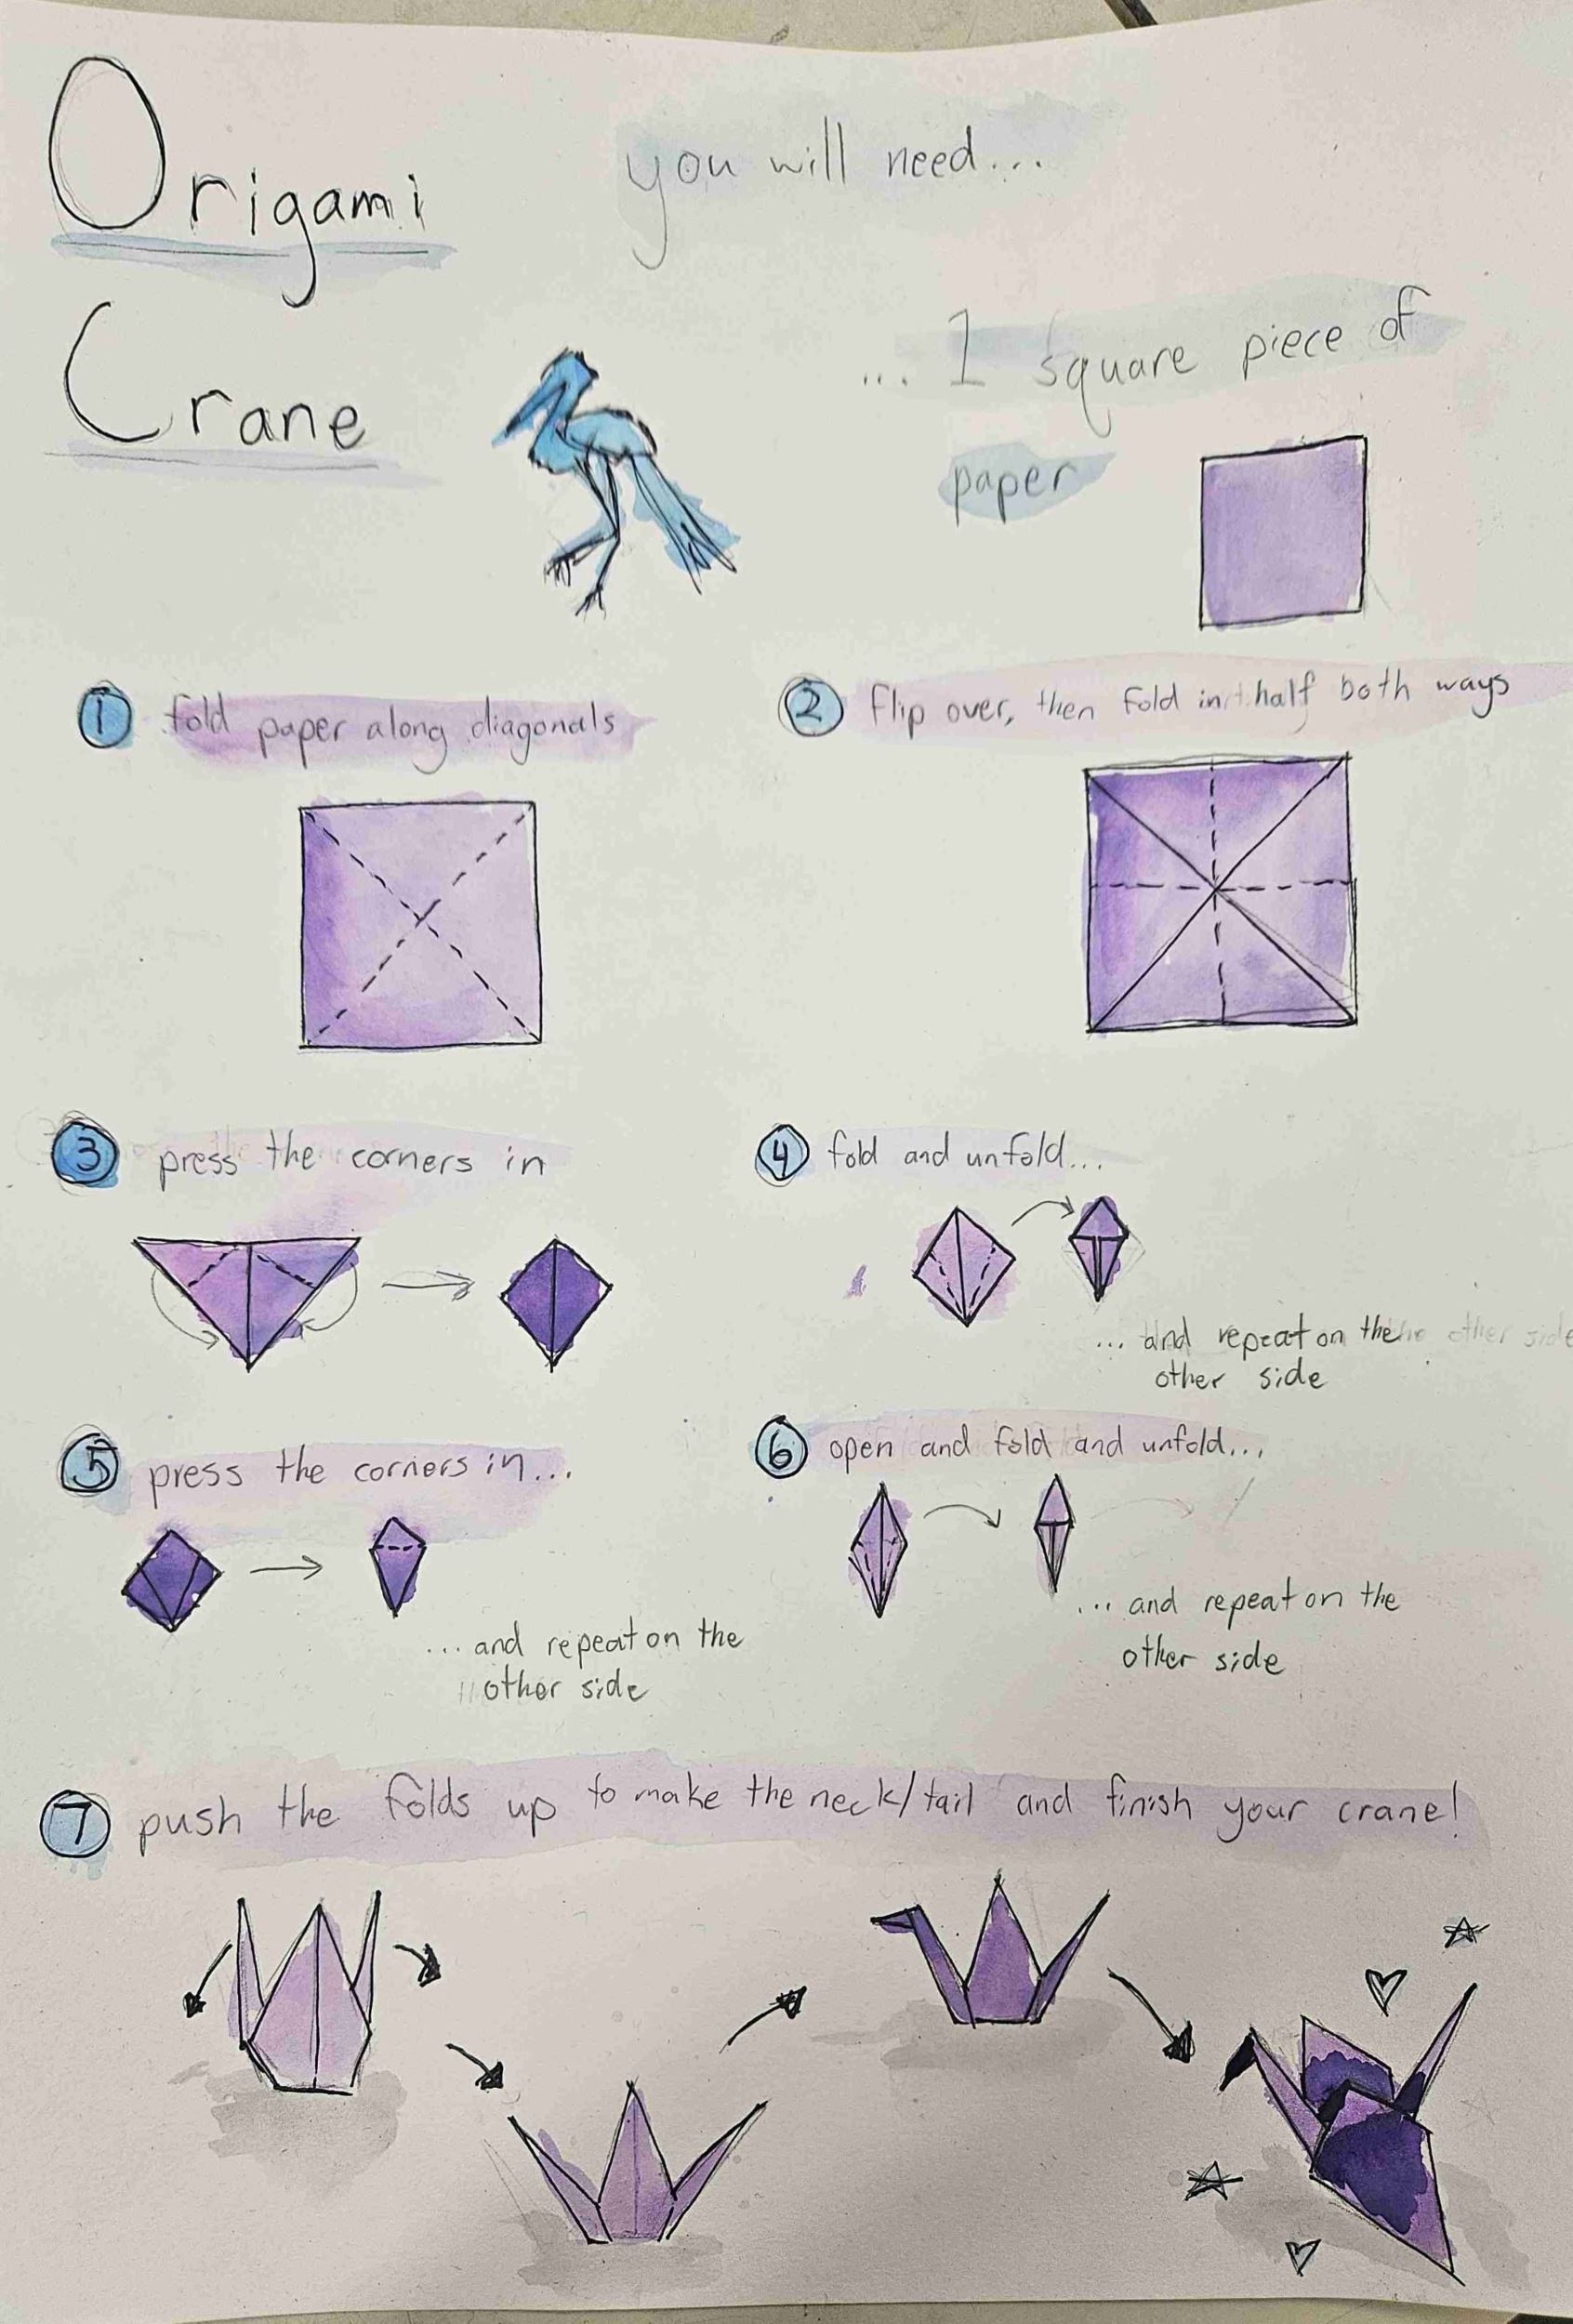 Origami
Crane
you will need...
... 1 square piece of
paper
1 fold paper along diagonals
2 flip over, then fold in half both ways
3 press the corners in
4 fold and unfold...
... and repeat on the
other side
5 press the corners in...
... and repeat on the
other side
6 open and fold and unfold...
... and repeat on the
other side
7 push the folds up to make the neck/tail and finish your crane!